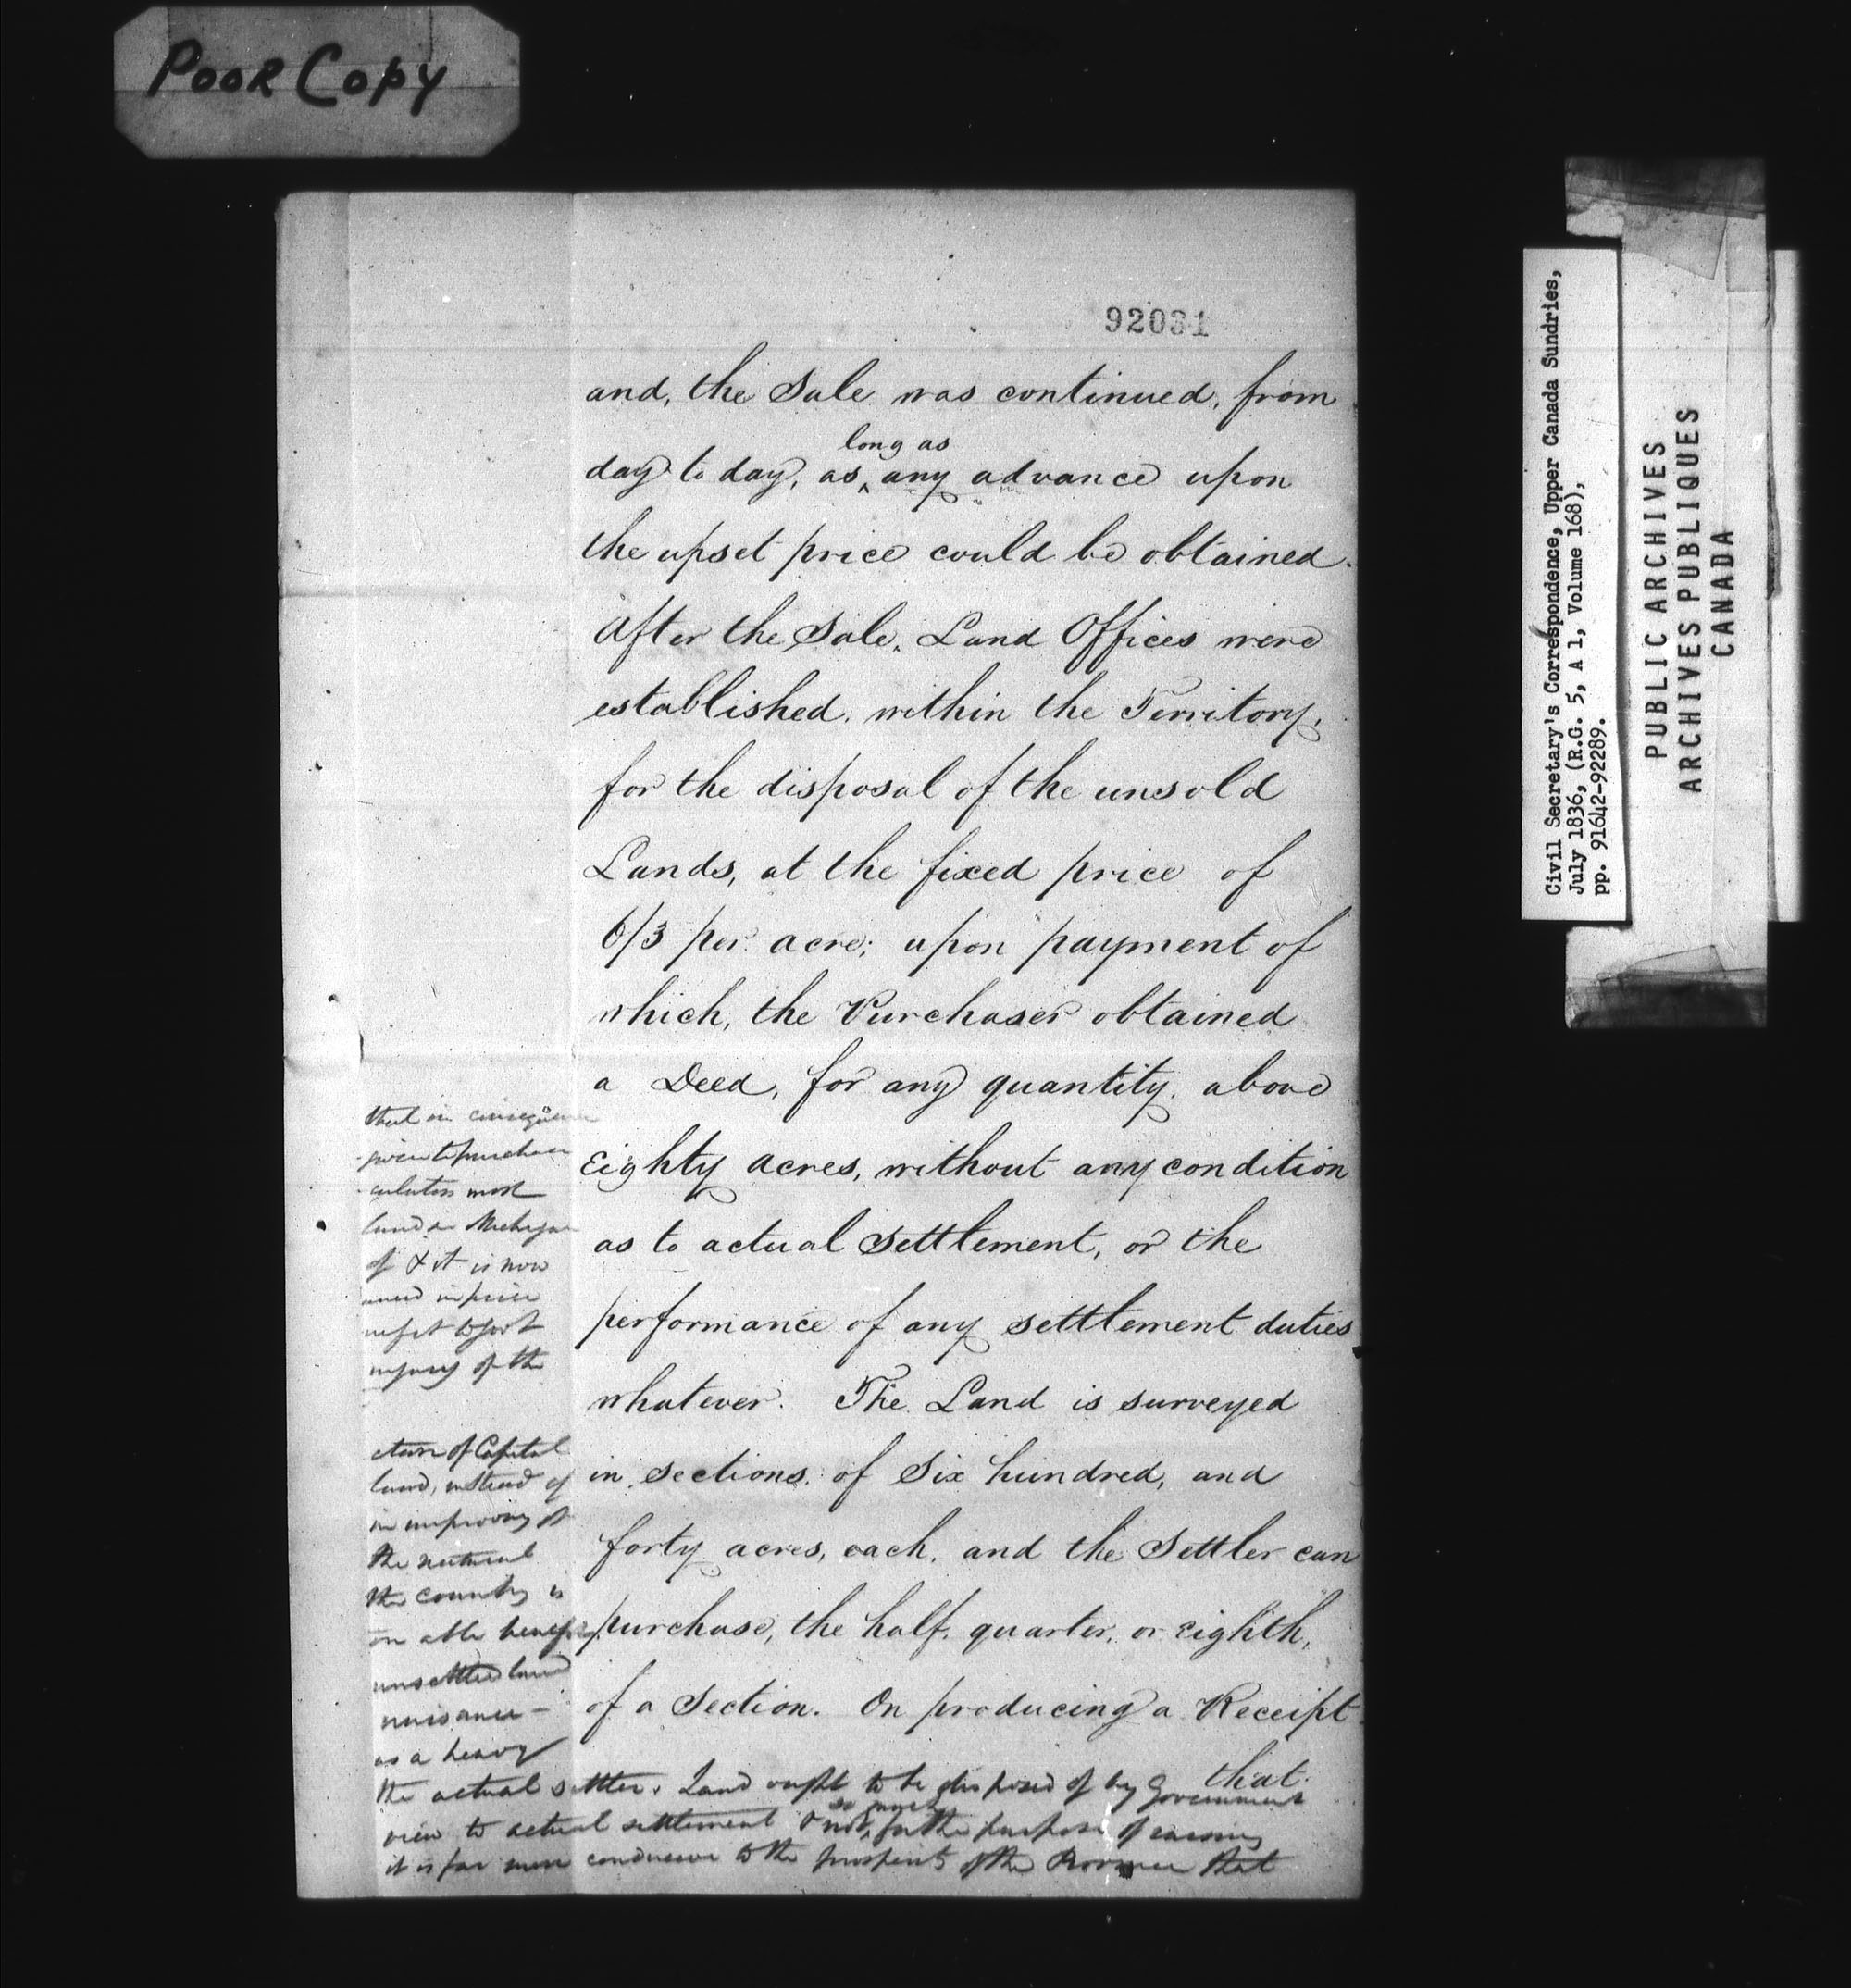 Poor Copy
92031
and, the Sale was continued, from
long as
day to day, as ^ any advance upon
the upset price could be obtained.
After the Sale, Land Offices were
established, within the Territory,
for the disposal of the unsold
Lands, at the fixed price of
6/3 per acre; upon payment of
which, the Purchaser obtained
a Deed, for any quantity, above
Eighty acres, without any condition
as to actual Settlement, or the
performance of any settlement duties
whatever. The Land is surveyed
in sections, of Six hundred, and
forty acres, each, and the Settler can
purchase, the half, quarter, or eighth,
of a Section. On producing a Receipt
that
that in consequence
land in Michigan
of & it is now
injury of the
of Capital
land, instead of
in improving it
the natural
the country is
unsettled land
nuisance —
as a heavy
the actual settler. Land ought to be disposed of by Government
so much
view to actual settlement & not ^ for the purpose of raising
it is far more conducive to the prosperity of the Province that
Civil Secretary's Correspondence, Upper Canada Sundries,
July 1836, (R.G. 5, A 1, Volume 168),
pp. 91642-92289.
PUBLIC ARCHIVES
ARCHIVES PUBLIQUES
CANADA